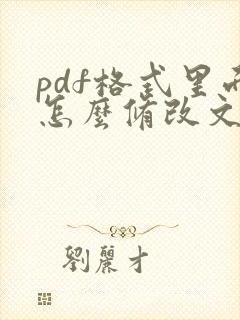 pdf格式里
怎麼脩改文
劉麗才